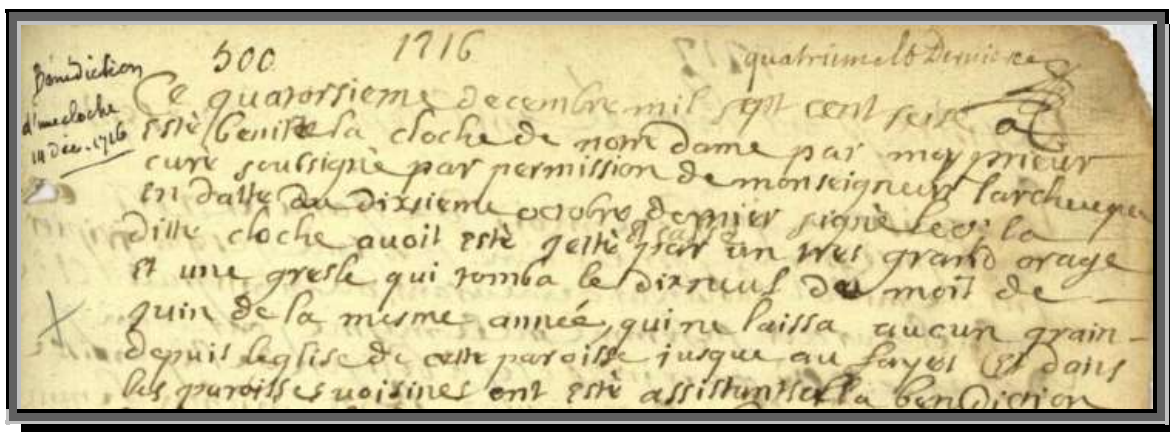 500 1716 quatrieme et Derniere
Bénédiction
d'une cloche
14 déc. 1716
Ce quatorsieme decembre mil sept cent seise a
Esté benitte la cloche de notre dame par moy prieur
curé soubsigné par permission de monseigneur l'archeveque
En datte du dixsieme octobre dernier signé la
ditte cloche avoit esté gettè par un tres grand orage
Et une gresle qui tomba le dixneuf du mois de
juin de la mesme année, qui ne laissa aucun grain
depuis leglise de cette paroisse jusque au fayet Et dans
les paroisses voisines ont esté assistants a la benediction